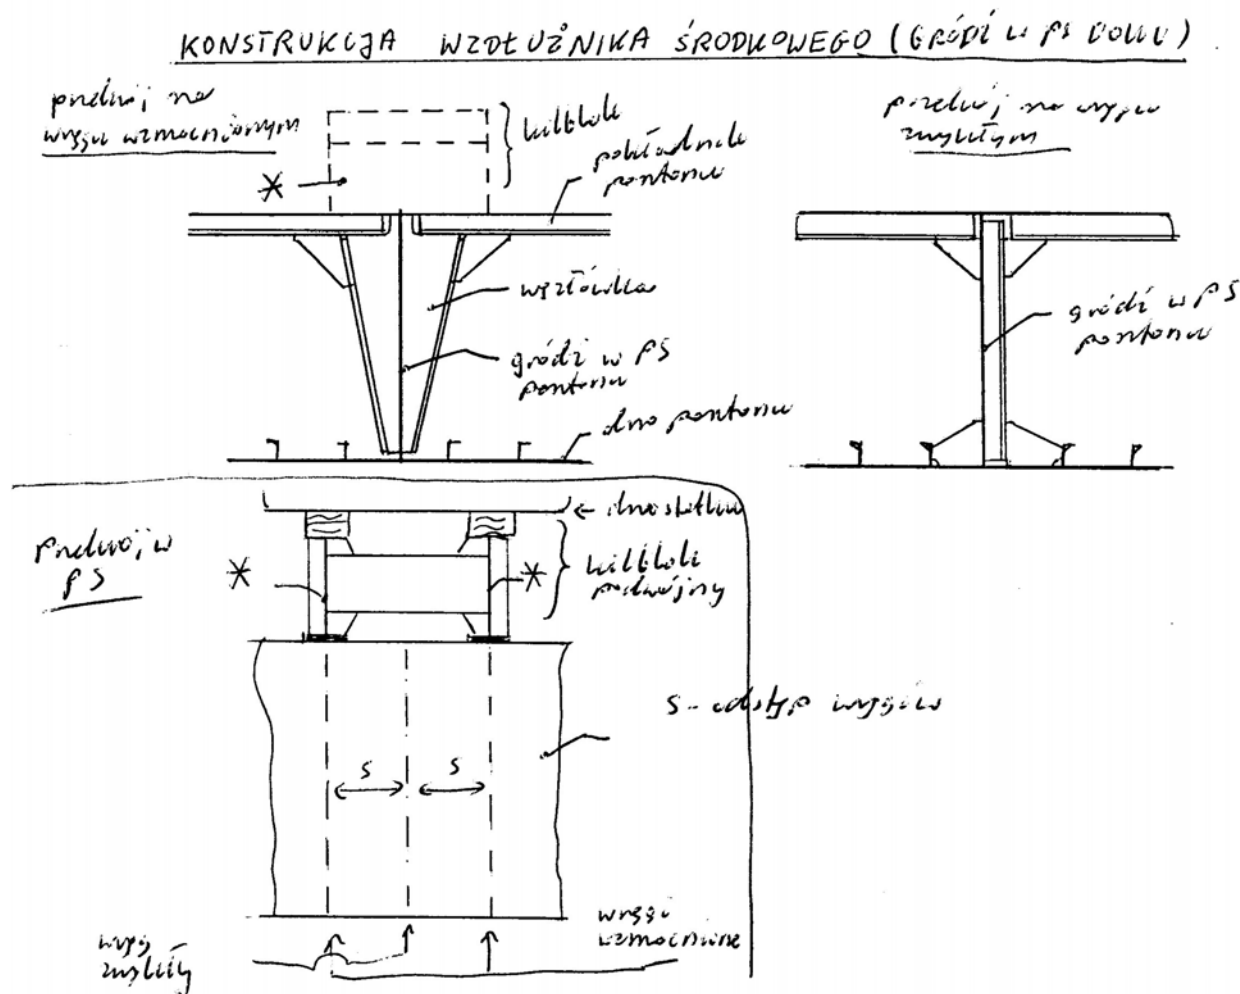 KONSTRUKCJA WZDŁUŻNIKA ŚRODKOWEGO (GRÓDŹ W PS DOKU)
przekrój na
wręgu wzmocnionym
kilblok
pokładnik
pontonu
węzłówka
gródź w PS
pontonu
dno pontonu
przekrój na wręgu
zwykłym
gródź w PS
pontonu
Przekrój w
PS
← dno statku
kilblok
podwójny
s - odstęp wręgów
s s
wręg
zwykły
wręgi
wzmocnione